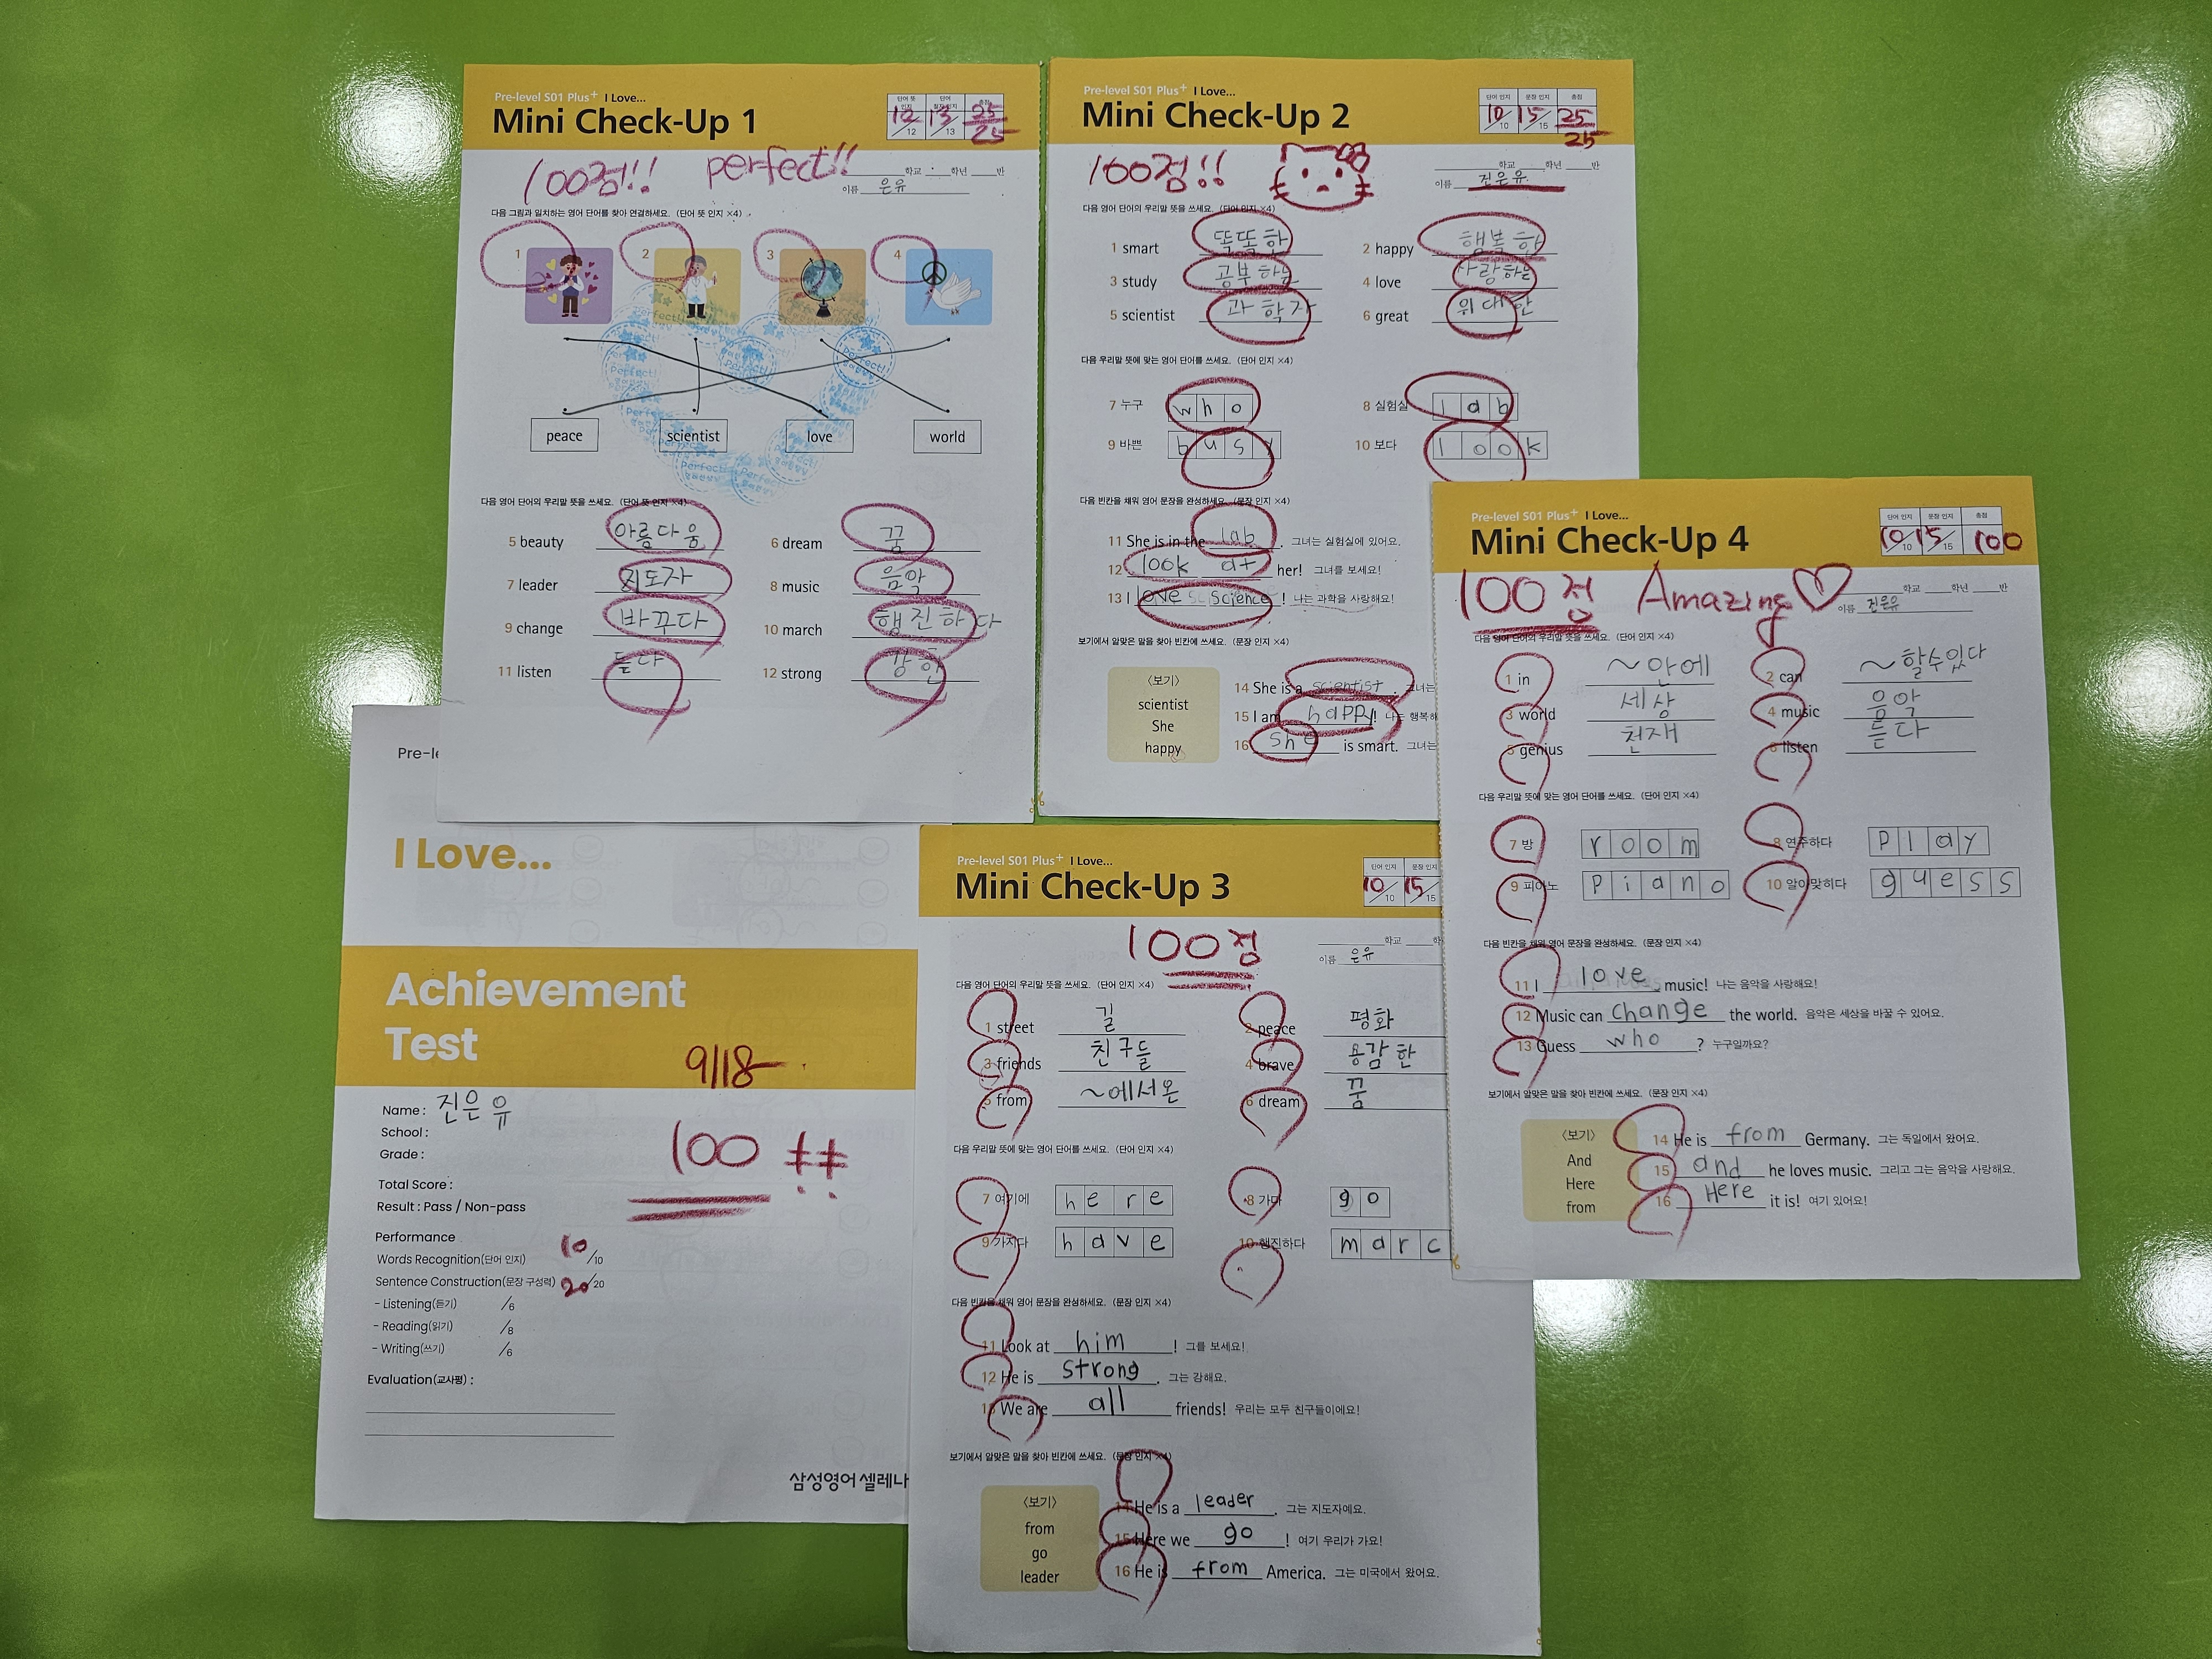 Pre-level S01 Plus+ I Love...
Mini Check-Up 1
단어 뜻 인지 단어 철자 인지 총점
12/12 13/13 25/25
100점!! perfect!!
학교 학년 반
이름 은유
다음 그림과 일치하는 영어 단어를 찾아 연결하세요. (단어 뜻 인지 ×4)
1 2 3 4
Perfect!
peace scientist love world
다음 영어 단어의 우리말 뜻을 쓰세요. (단어 뜻 인지 ×4)
5 beauty 아름다움 6 dream 꿈
7 leader 지도자 8 music 음악
9 change 바꾸다 10 march 행진하다
11 listen 듣다 12 strong 강한
Pre-level S01 Plus+ I Love...
Mini Check-Up 2
단어 인지 문장 인지 총점
10/10 15/15 25/25
100점!!
학교 학년 반
이름 진은유
다음 영어 단어의 우리말 뜻을 쓰세요. (단어 인지 ×4)
1 smart 똑똑한 2 happy 행복한
3 study 공부하는 4 love 사랑하는
5 scientist 과학자 6 great 위대한
다음 우리말 뜻에 맞는 영어 단어를 쓰세요. (단어 인지 ×4)
7 누구 who 8 실험실 lab
9 바쁜 busy 10 보다 look
다음 빈칸을 채워 영어 문장을 완성하세요. (문장 인지 ×4)
11 She is in the lab. 그녀는 실험실에 있어요.
12 look at her! 그녀를 보세요!
13 I love Science! 나는 과학을 사랑해요!
보기에서 알맞은 말을 찾아 빈칸에 쓰세요. (문장 인지 ×4)
<보기>
scientist
She
happy
14 She is a scientist. 그녀는
15 I am happy! 나는 행복해
16 She is smart. 그녀는
Pre-level S01 Plus+ I Love...
Mini Check-Up 4
단어 인지 문장 인지 총점
10/10 15/15 100
100점 Amazing
학교 학년 반
이름 진은유
다음 영어 단어의 우리말 뜻을 쓰세요. (단어 인지 ×4)
1 in ~안에 2 can ~할수있다
3 world 세상 4 music 음악
5 genius 천재 6 listen 듣다
다음 우리말 뜻에 맞는 영어 단어를 쓰세요. (단어 인지 ×4)
7 방 room 8 연주하다 play
9 피아노 piano 10 알아맞히다 guess
다음 빈칸을 채워 영어 문장을 완성하세요. (문장 인지 ×4)
11 I love music! 나는 음악을 사랑해요!
12 Music can change the world. 음악은 세상을 바꿀 수 있어요.
13 Guess who? 누구일까요?
보기에서 알맞은 말을 찾아 빈칸에 쓰세요. (문장 인지 ×4)
<보기>
And
Here
from
14 He is from Germany. 그는 독일에서 왔어요.
15 and he loves music. 그리고 그는 음악을 사랑해요.
16 Here it is! 여기 있어요!
Pre-le
I Love...
Achievement
Test
9/18
Name : 진은유
School :
Grade :
100 !!
Total Score :
Result : Pass / Non-pass
Performance
Words Recognition(단어 인지) 10/10
Sentence Construction(문장 구성력) 20/20
- Listening(듣기) /6
- Reading(읽기) /8
- Writing(쓰기) /6
Evaluation(교사평) :
삼성영어 셀레나
Pre-level S01 Plus+ I Love...
Mini Check-Up 3
단어 인지 문장 인지
10/10 15/15
100점
학교
이름 은유
다음 영어 단어의 우리말 뜻을 쓰세요. (단어 인지 ×4)
1 street 길 2 peace 평화
3 friends 친구들 4 brave 용감한
5 from ~에서온 6 dream 꿈
다음 우리말 뜻에 맞는 영어 단어를 쓰세요. (단어 인지 ×4)
7 여기에 here 8 가다 go
9 가지다 have 10 행진하다 marc
다음 빈칸을 채워 영어 문장을 완성하세요. (문장 인지 ×4)
11 Look at him! 그를 보세요!
12 He is strong. 그는 강해요.
13 We are all friends! 우리는 모두 친구들이에요!
보기에서 알맞은 말을 찾아 빈칸에 쓰세요. (문장 인지 ×4)
<보기>
from
go
leader
14 He is a leader. 그는 지도자예요.
15 Here we go! 여기 우리가 가요!
16 He is from America. 그는 미국에서 왔어요.